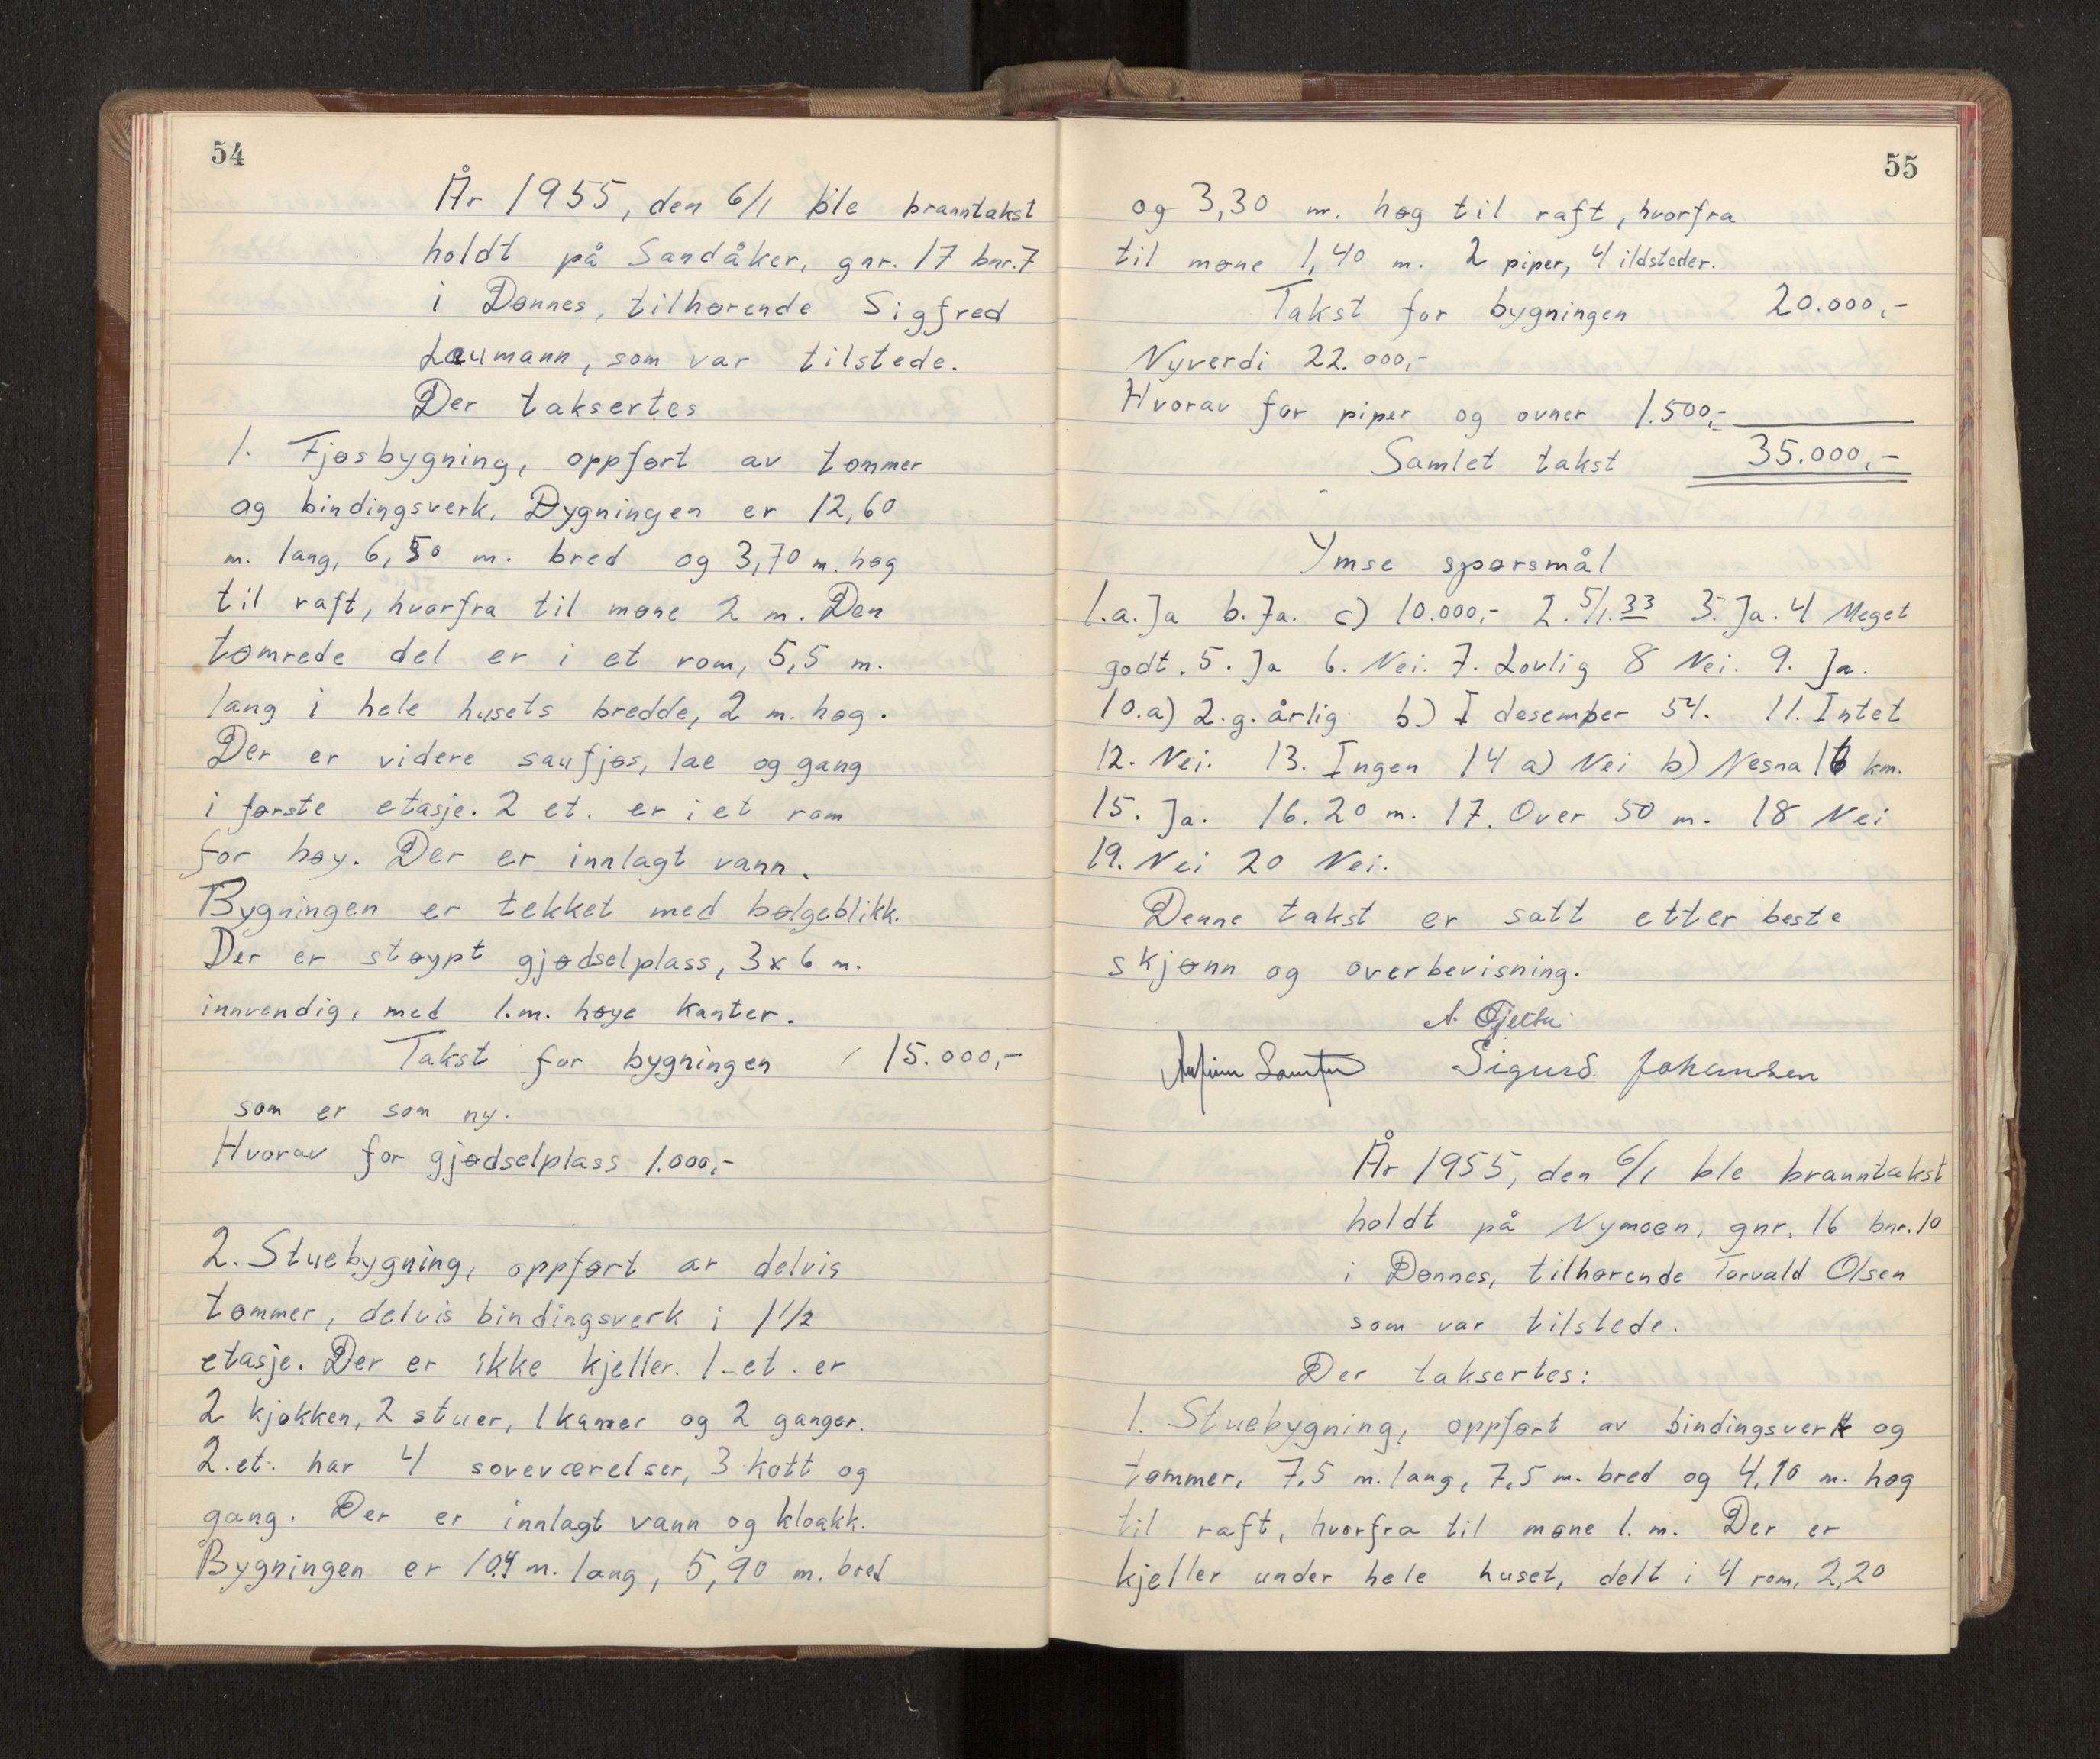 54
År 1955, den 6/1 ble branntakst
holdt på Sandåker, gnr. 17 bnr. 7
i Dønnes, tilhørende Sigfred
Laumann, som var tilstede.
Der taksertes
1. Fjøsbygning, oppført av tømmer
og bindingsverk. Bygningen er 12,60
m. lang, 6,50 m. bred og 3,70 m. høg
til raft, hvorfra til møne 2 m. Den
tømrede del er i et rom, 5,5 m.
lang i hele husets bredde, 2 m. høg.
Der er videre saufjøs, lae og gang
i første etasje. 2 et. er i et rom
for høy. Der er innlagt vann.
Bygningen er tekket med bølgeblikk.
Der er støypt gjødselplass, 3x6 m.
innvendig, med 1.m. høye kanter.
Takst for bygningen 15.000,-
som er som ny.
Hvorav for gjødselplass 1.000,-
2. Stuebygning, oppført av delvis
tømmer, delvis bindingsverk i 1 1/2
etasje. Der er ikke kjeller. 1-et. er
2 kjøkken, 2 stuer, 1 kamer og 2 ganger.
2.et. har 4 soveværelser, 3 kott og
gang. Der er innlagt vann og kloakk.
Bygningen er 10,4 m. lang, 5,90 m. bred
55
og 3,30 m. høg til raft, hvorfra
til møne 1,40 m. 2 piper, 4 ildsteder.
Takst for bygningen 20.000,-
Nyverdi 22.000,-
Hvorav for piper og ovner 1.500,-
Samlet takst 35.000,-
Ymse spørsmål
1.a. Ja b. Ja. c) 10.000,- 2. 5/1.33 3. Ja. 4 Meget
godt. 5. Ja 6. Nei. 7. Lovlig 8 Nei. 9. Ja.
10.a) 2.g. årlig b) I desember 54. 11. Intet
12. Nei. 13. Ingen 14 a) Nei b) Nesna 16 km.
15. Ja. 16. 20 m. 17. Over 50 m. 18 Nei
19. Nei 20 Nei.
Denne takst er satt etter beste
skjønn og overbevisning.
A.
Sigurd Johansen
År 1955, den 6/1 ble branntakst
holdt på Nymoen, gnr. 16 bnr. 10
i Dønnes, tilhørende Torvald Olsen
som var tilstede.
Der taksertes:
1. Stuebygning, oppført av bindingsverk og
tømmer, 7,5 m. lang, 7,5 m. bred og 4,10 m. høg
til raft, hvorfra til møne 1. m. Der er
kjeller under hele huset, delt i 4 rom, 2,20